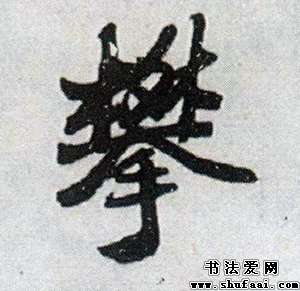 攀
书法爱网
www.shufaai.com